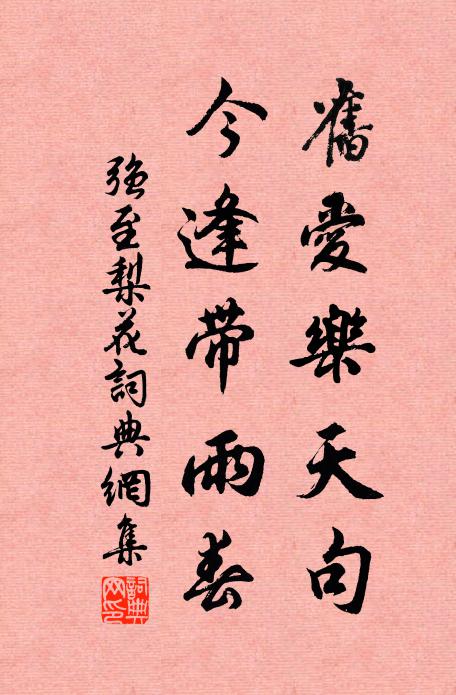 舊愛樂天句
今逢帶雨春
強至梨花詞典網集
詞典
网印